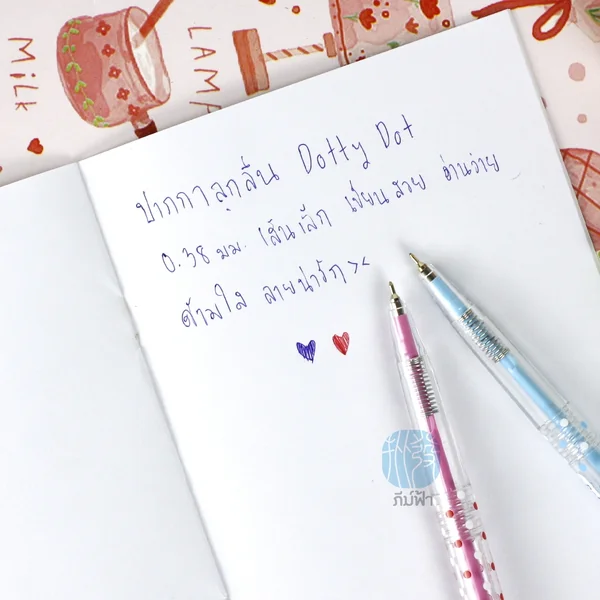 MiLK
LAMA
ปากกาลูกลื่น Dotty Dot
0.38 มม. เส้นเล็ก เขียนสวย อ่านง่าย
ด้ามใส ลายน่ารัก ><
ภีม์ฟ้า